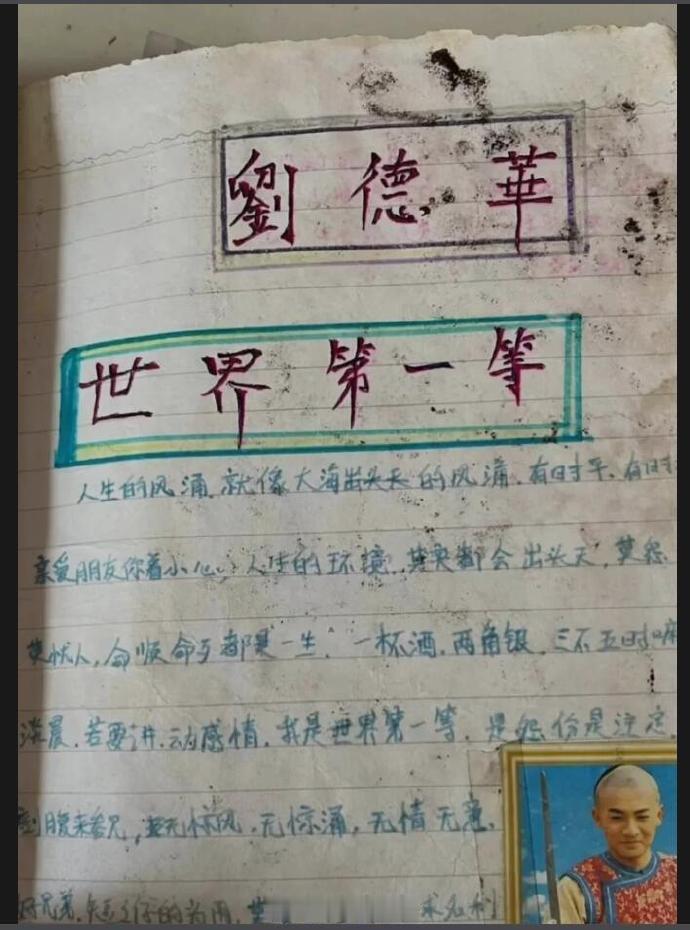 劉德華
世界第一等
人生的风涌,就像大海出头天的风涌,有时平,有时
亲爱朋友你着小心,人生的环境,其实都会出头天,莫怨
莫忧人,命顺命歹都是一生,一杯酒,两角银,三不五时
若要讲动感情,我是世界第一等,是缘份是注定,
无惊风,无惊涌,无情无意,
好兄弟
求名利